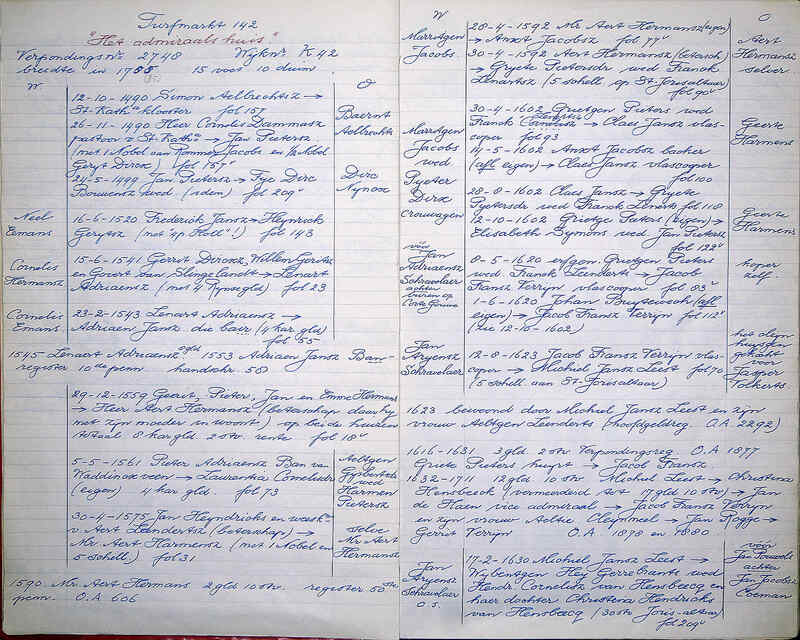 Turfmarkt 142
"Het admiraals huis."
Verpondingsnr 2748 Wijknr K 42
breedte in 1788: 15 voet 10 duim.
W O
12-10-1490 Simon Aelbrechtsz →
St-Kath klooster fol 157
Baernt
Aelbrechts
26-11-1490 Heer Cornelis Dammasz
pastoor v St-Kath → Jan Pietersz
fol 157
21-5-1499 Jan Pietersz → Fye Dirc
Bouwensz wed fol 209
Dirc
Nynox
Neel
Emans
16-6-1520 Frederick Jansz → Heynrick
Gerytsz fol 143
Cornelis
Hermansz
15-6-1541 Gerrit Dircxz, Willem Gerritsz
en Govert van Slingelandt → Lenart
Adriaensz (met 4 Rynsegld) fol 23
Cornelis
Emans
23-2-1543 Lenart Adriaensz →
Adriaen Jansz die baer (4 kar gld)
fol 55
1545 Lenaert Adriaensz 1553 Adriaen Jansz Ban-
register 10de penn handschr. 581
29-12-1559 Gerrit, Pieter, Jan en Emme Hermens
→ Heer Aert Hermensz (betaerschap daer hy
met zijn moeder in woont) op beide huizen
totaal 8 kar gld 2 stv. rente fol 18
5-5-1561 Pieter Adriaensz Ban van
Waddinxveen → Laurentia Cornelisdr
(eigen) 4 kar gld. fol 73
Aeltgen
Gysberts
wed
Harmen
Pietersz
30-4-1575 Jan Heyndricks en
v. Aert Leendertsz (betaerschap) →
Mr. Aert Harmensz (met 1 Nobel en
5 schell) fol 31
selve
Mr Aert
Hermansz
1590 Mr. Aert Hermans 2 gld 10 stv. register 50ste
penn. O.A 606
W O
Marritgen
Jacobs
28-4-1592 Mr. Aert Hermansz (eigen)
→ Annet Jacobsz fol 77
30-4-1592 Aert Hermansz (betaersch)
→ Gryete Pietersdr wed Franck
Lenartsz (5 schell op St. Jorisaltaar)
fol 90
Aert
Hermansz
selver
Marritgen
Jacobs
wed
Pyeter
Dirx
Crouwagen
30-4-1602 Grietgen Pieters wed
Franck → Claes Jansz vlas-
coper fol 81
14-5-1602 Annet Jacobsz backer
(afl eigen) → Claes Jansz vlascoper
fol 100
Geerte
Harmens
28-8-1602 Claes Jansz → Gryete
Pietersdr wed Franck Lenerts fol 118
12-10-1602 Grietge Pieters (eigen) →
Elisabeth Symons wed Jan Pietersz
fol 122
Geerte
Harmens
vóór
Jan
Adriaensz
Schravelaer
achter
buren op
Corte Gouwe
8-5-1620 erfgen. Grietgen Pieters
wed Franck Leenderts → Jacob
Fransz Verryn vlascoper fol 83
1-6-1620 Johan Bruyseweck (afl
eigen) → Jacob Fransz Verryn fol 112
(zie 12-10-1602)
koper
zelf.
Jan
Aryensz
Schravelaer
12-8-1623 Jacob Fransz Verryn vlas-
coper → Michiel Jansz Leest fol 70
(5 schell aan St-Jorisaltaar)
het cleyn
huysgen
gekocht
vóór
Jasper
Tolkerts.
1623 bewoond door Michiel Jansz Leest en zijn
vrouw Aeltgen Leenderts (hoofdgeldreg. O.A. 2292)
1616-1631 3 gld 2 stv. Verpondingsreg. O.A 1877
Griete Pieters huyst → Jacob Fransz.
1632-1711 12 gld 10 stv. Michiel Leest → Christina
Hensbeeck (vermeerderd tot 17 gld 10 stv) → Jan
de Haen vice admiraal → Jacob Fransz Verryn
en zijn vrouw Aeltie Cleynneel → Jan Rogge →
Gerrit Verryn O.A. 1878 en 1880
Jan
Aryensz
Schravelaer
o.s.
17-2-1630 Michiel Jansz Leest →
Wybentgen Hey Gerrebrants wed
Hendr Cornelisz van Hensbeecq en
haer dochter Christina Hendricks
van Hensbeecq (30 stv Joris-altaar)
fol 209
vóór
Jan Pouwelsz
achter
Jan Jacobsz
Coeman